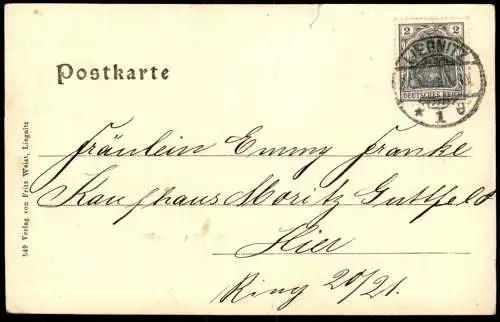 2 2
LIEGNITZ
DEUTSCHES REICH
* 1
Postkarte
Fräulein Emmy Franke
Kaufhaus Moritz Guttfeld
Hier
Ring 20/21.
549 Verlag von Fritz Weist, Liegnitz